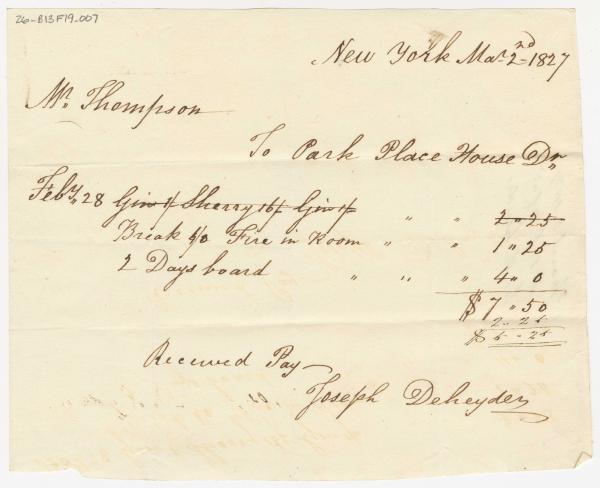 26-B13F19-007
New York Mar. 2nd 1827
Mr. Thompson
To Park Place House Dr,,
Feby,, 28 Gin 1/ Sherry 16/ Gin 1/ " " 2 " 25
Break 4/0 Fire in Room " " 1 " 25
2 Days board " " " 4 " 0
$ 7 " 50
2 " 25
$ 5 - 25
Received Pay
Joseph Deheyder